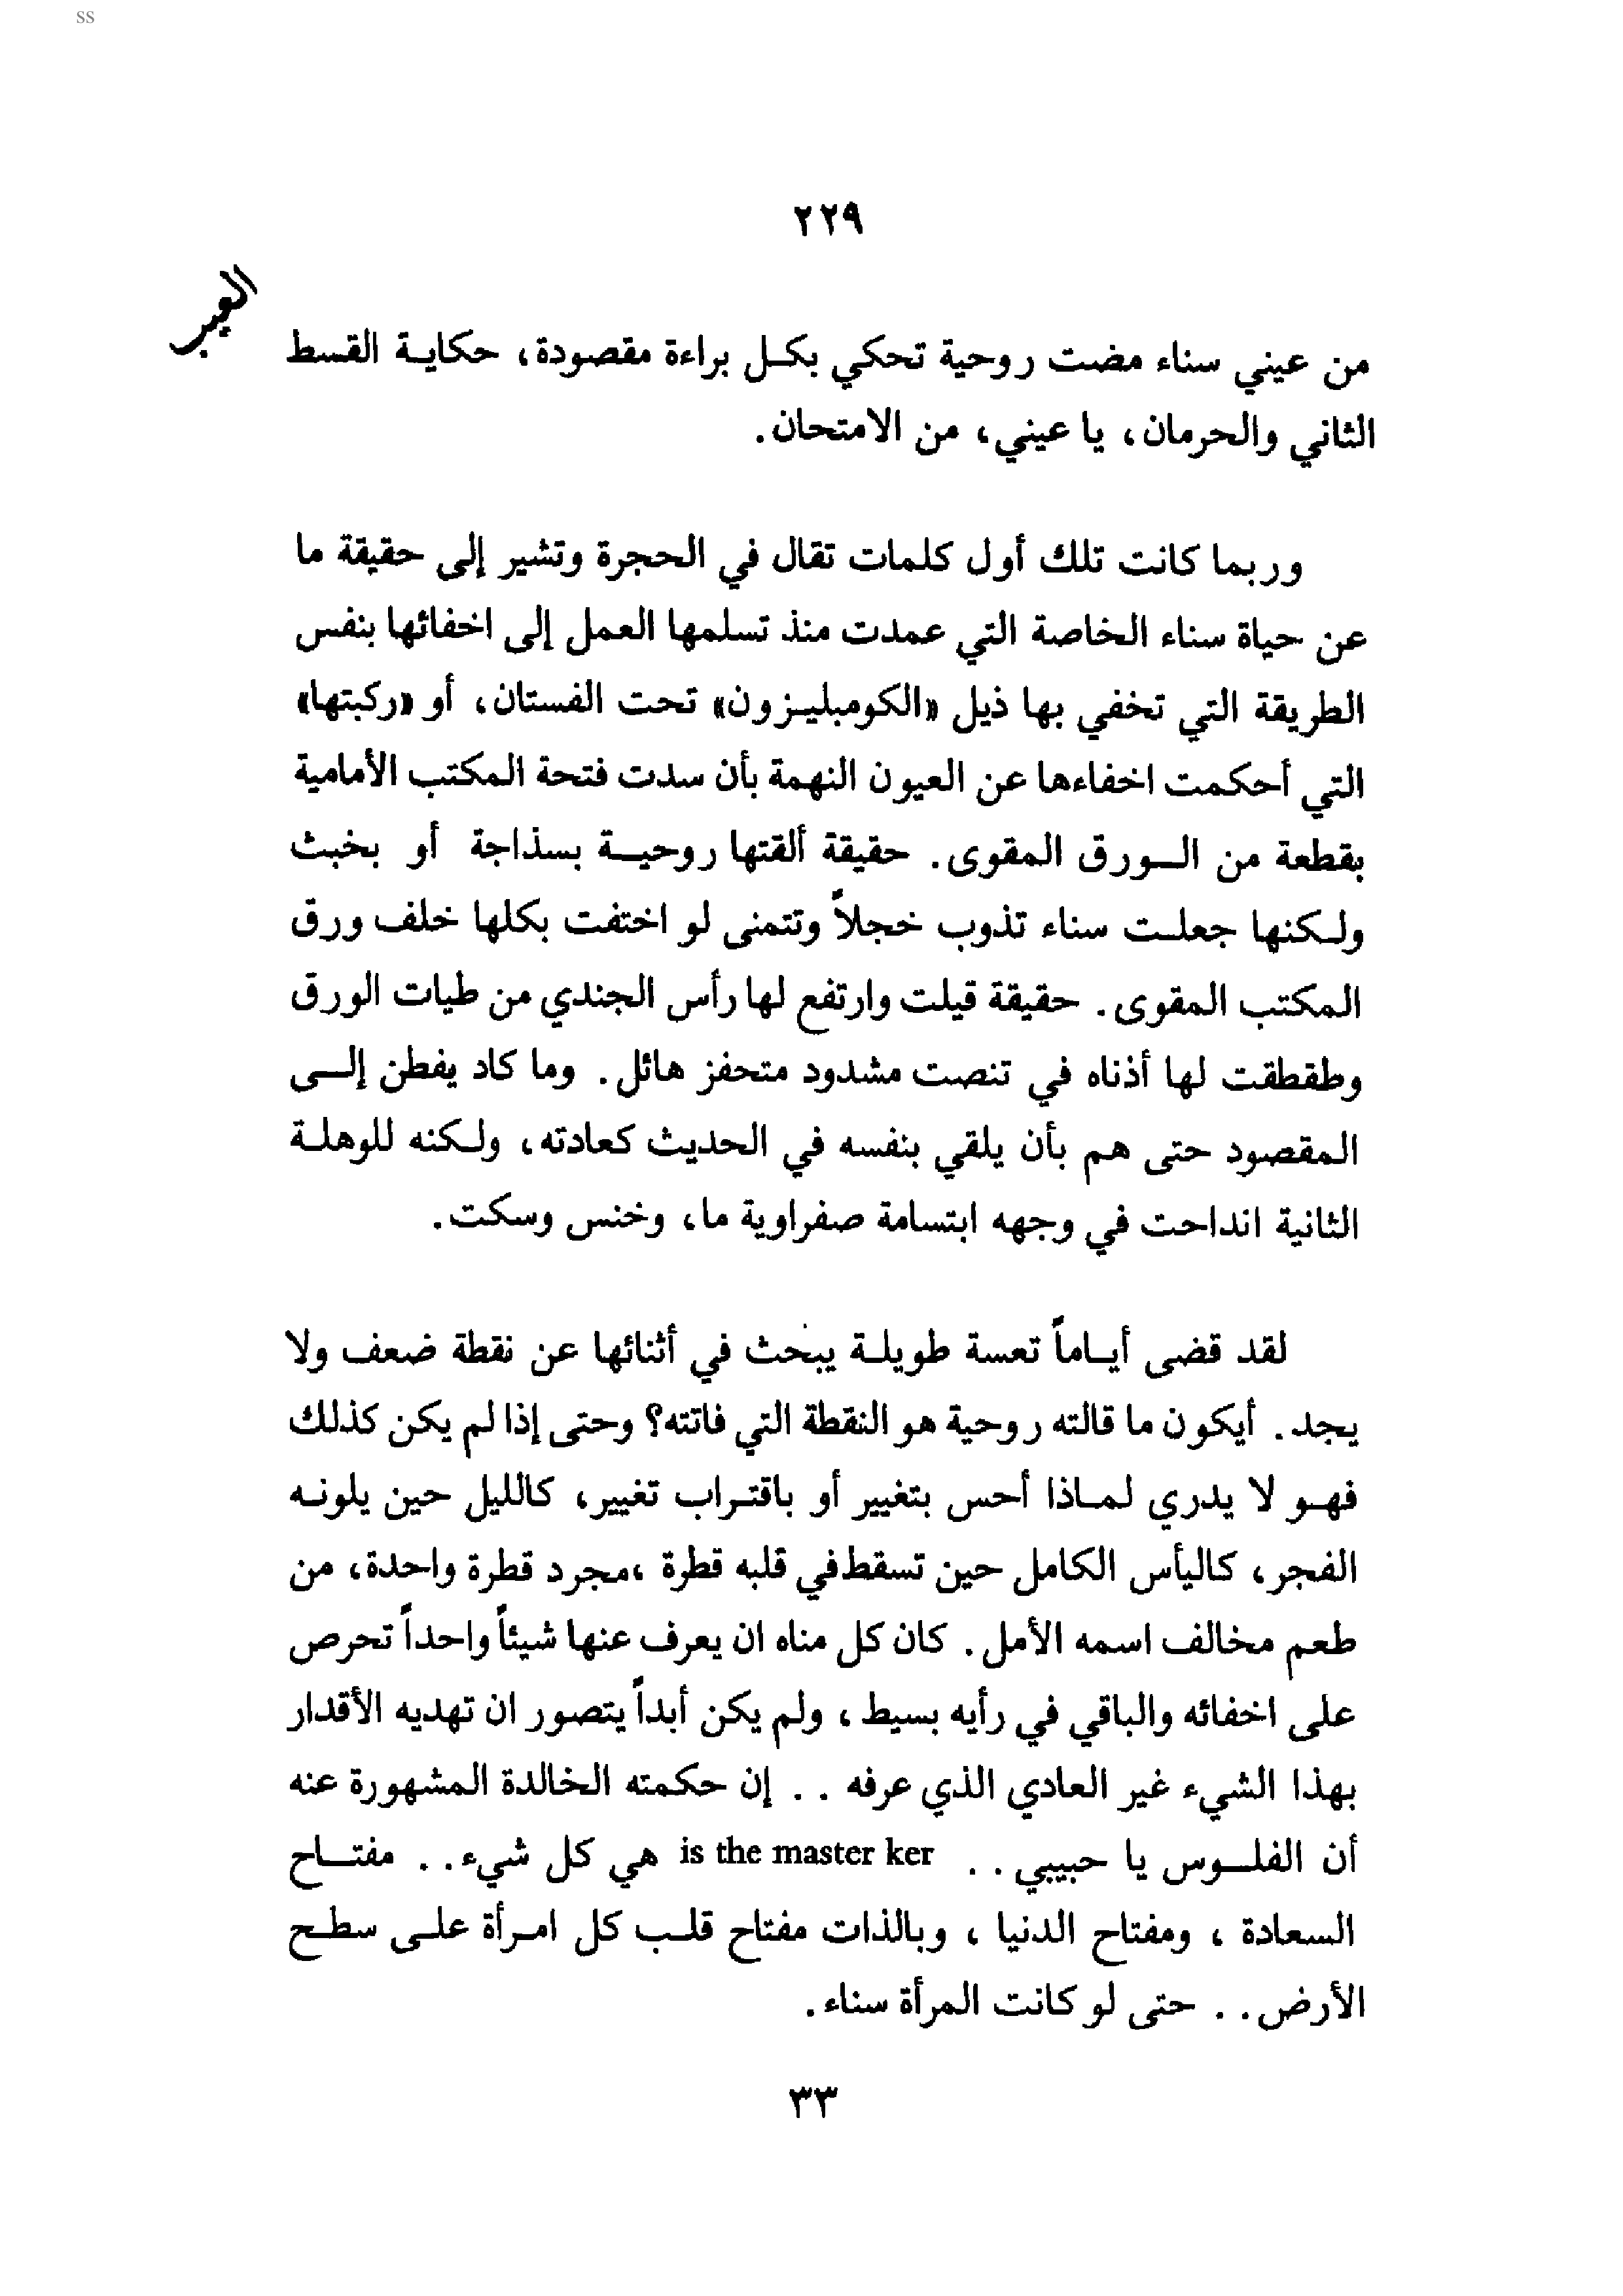 SS
٢٢٩
العيب
من عيني سناء مضت روحية تحكي بكل براءة مقصودة، حكاية القسط
الثاني والحرمان، يا عيني، من الامتحان.
وربما كانت تلك أول كلمات تقال في الحجرة وتشير إلى حقيقة ما
عن حياة سناء الخاصة التي عمدت منذ تسلمها العمل إلى اخفائها بنفس
الطريقة التي تخفي بها ذيل «الكومبليزون» تحت الفستان، أو «ركبتها»
التي أحكمت اخفاءها عن العيون النهمة بأن سدت فتحة المكتب الأمامية
بقطعة من الورق المقوى. حقيقة ألقتها روحية بسذاجة أو بخبث
ولكنها جعلت سناء تذوب خجلاً وتتمنى لو اختفت بكلها خلف ورق
المكتب المقوى. حقيقة قيلت وارتفع لها رأس الجندي من طيات الورق
وطقطقت لها أذناه في تنصت مشدود متحفز هائل. وما كاد يفطن إلى
المقصود حتى هم بأن يلقي بنفسه في الحديث كعادته، ولكنه للوهلة
الثانية انداحت في وجهه ابتسامة صفراوية ما، وخنس وسكت.
لقد قضى أياماً تعسة طويلة يبحث في أثنائها عن نقطة ضعف ولا
يجد. أيكون ما قالته روحية هو النقطة التي فاتته؟ وحتى إذا لم يكن كذلك
فهو لا يدري لماذا أحس بتغيير أو باقتراب تغيير، كالليل حين يلونه
الفجر، كاليأس الكامل حين تسقط في قلبه قطرة ،مجرد قطرة واحدة، من
طعم مخالف اسمه الأمل. كان كل مناه ان يعرف عنها شيئاً واحداً تحرص
على اخفائه والباقي في رأيه بسيط ، ولم يكن أبداً يتصور ان تهديه الأقدار
بهذا الشيء غير العادي الذي عرفه . . إن حكمته الخالدة المشهورة عنه
أن الفلوس يا حبيبي . . is the master ker هي كل شيء. . مفتاح
السعادة ، ومفتاح الدنيا ، وبالذات مفتاح قلب كل امرأة على سطح
الأرض. . حتى لو كانت المرأة سناء.
٣٣